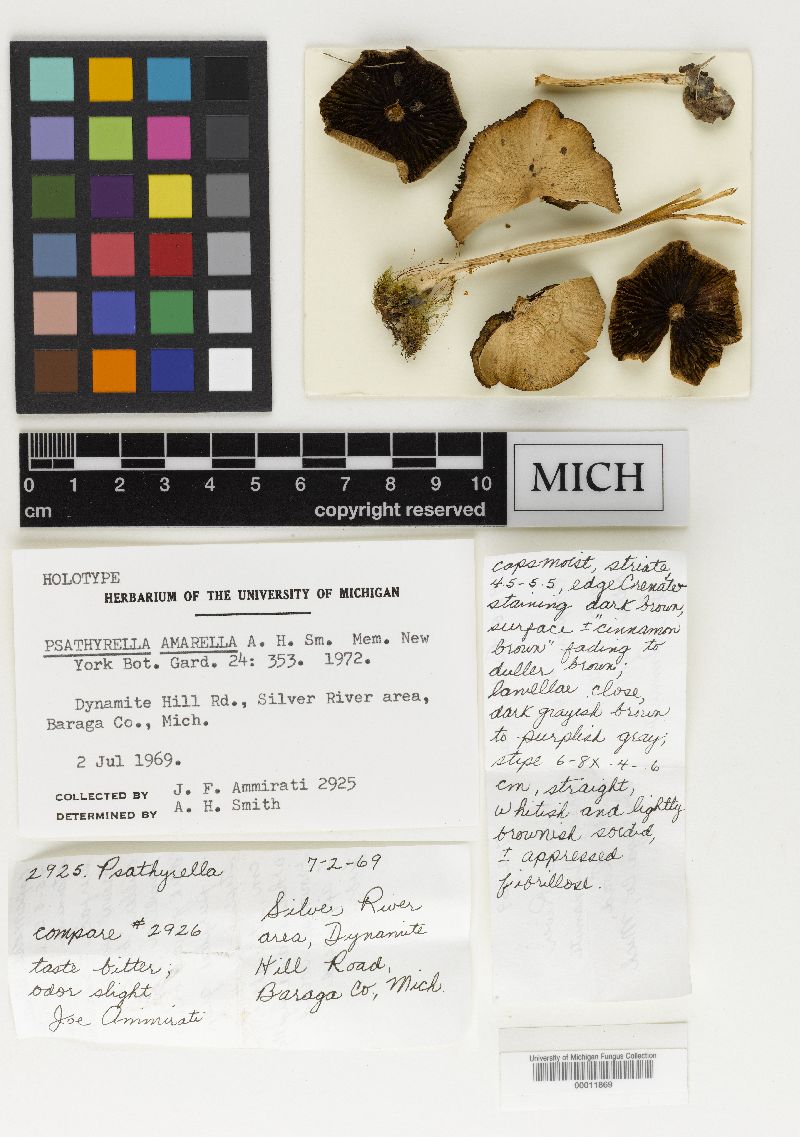 0 1 2 3 4 5 6 7 8 9 10
cm copyright reserved
MICH
HOLOTYPE
HERBARIUM OF THE UNIVERSITY OF MICHIGAN
PSATHYRELLA AMARELLA A. H. Sm. Mem. New
York Bot. Gard. 24: 353. 1972.
Dynamite Hill Rd., Silver River area,
Baraga Co., Mich.
2 Jul 1969.
COLLECTED BY J. F. Ammirati 2925
DETERMINED BY A. H. Smith
caps moist, striate,
4.5-5.5, edge Crenate
staining dark brown,
surface ± "cinnamon
brown" fading to
duller brown;
lamellae close,
dark grayish brown
to purplish gray;
stipe 6-8 x .4-.6
cm, straight,
whitish and lightly
brownish sordid,
± appressed
fibrillose.
2925. Psathyrella 7-2-69
compare #2926
taste bitter;
odor slight
Joe Ammirati
Silver River
area, Dynamite
Hill Road,
Baraga Co, Mich.
University of Michigan Fungus Collection
00011869